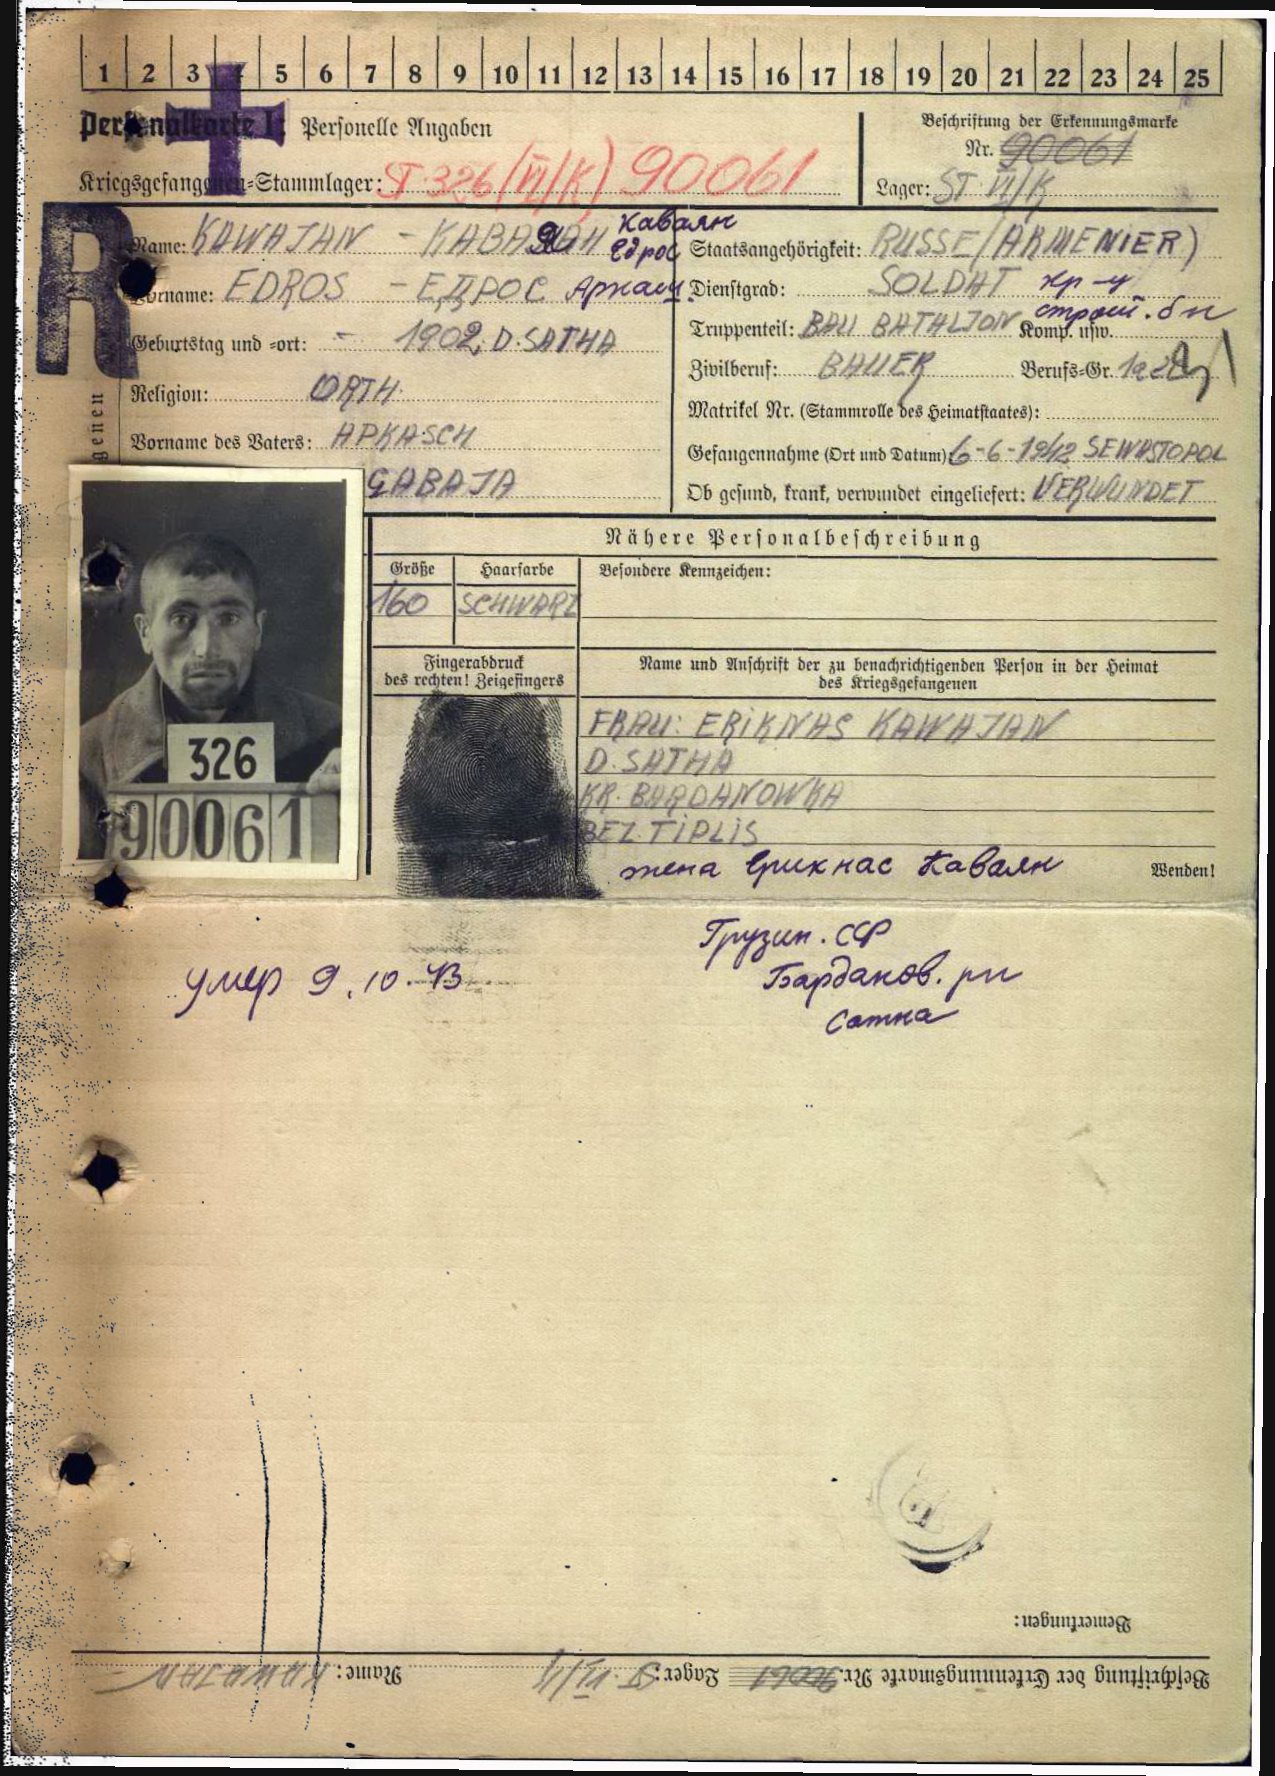 1 2 3 4 5 6 7 8 9 10 11 12 13 14 15 16 17 18 19 20 21 22 23 24 25
Personalkarte I: Personelle Angaben
Beschriftung der Erkennungsmarke
Nr. 90061
Kriegsgefangenen-Stammlager: ST. 326 (VI/K) 90061
Lager: ST VI/K
R
Name: KAWAJAN - КАВАЯН Каваян Едрос
Staatsangehörigkeit: RUSSE (ARMENIER)
Vorname: EDROS - ЕДРОС Аркаш.
Dienstgrad: SOLDAT кр-ц
Geburtstag und -ort: - 1902, D. SATHA
Truppenteil: BAU BATALION Komp. usw. строит. б-н
Zivilberuf: BAUER Berufs-Gr.
Religion: ORTH.
Matrikel Nr. (Stammrolle des Heimatstaates):
Vorname des Vaters: APKASCH
Gefangennahme (Ort und Datum): 6-6-1942 SEWASTOPOL
genen
GABAJA
Ob gesund, krank, verwundet eingeliefert: VERWUNDET
Nähere Personalbeschreibung
Größe Haarfarbe Besondere Kennzeichen:
160 SCHWARZ
Fingerabdruck
des rechten! Zeigefingers
Name und Anschrift der zu benachrichtigenden Person in der Heimat
des Kriegsgefangenen
FRAU: ERIKNAS KAWAJAN
D. SATHA
KR. BARDANOWKA
BEZ. TIPLIS
326
90061
жена Ерикнас Каваян
Wenden!
Грузин. ССР
умер 9.10.43
Барданов. рн
Сатха
Bemerkungen:
Beschriftung der Erkennungsmarke Nr. 90061 Lager: ST. VI/K Name: KAWAJAN